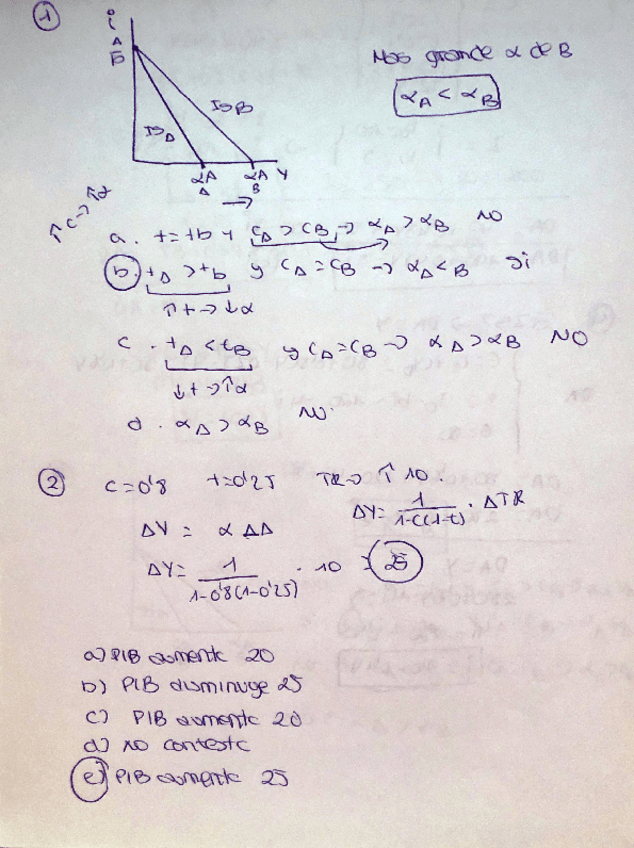 ①
i
A
b
Mas grande α de B
αA < αB
IS A
IS B
αA
A
αA
B
Y
↑c → ↑α
a. t = tb y cA > cB → αA > αB NO
b. tA > tb y cA = cB → αA < αB si
↑t → ↓α
c. tA < tB y cA = cB → αA > αB NO
↓t → ↑α
d. αA > αB NO.
② c = 0'8 t = 0'25 TR → ↑ 10.
ΔY = 1/1-c(1-t) · ΔTR
ΔY = α ΔA
ΔY = 1/1-0'8(1-0'25) · 10 = 25
a) PIB aumenta 20
b) PIB disminuye 25
c) PIB aumenta 20
d) no contesta
e) PIB aumenta 25